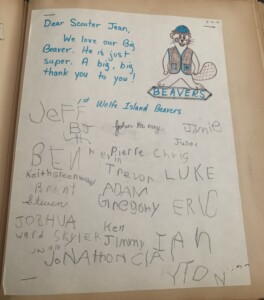 Dear Scouter Jean,
We love our Big
Beaver. He is just
super. A big, big
thank you to you!
BEAVERS
1st Wolfe Island Beavers
JEFF
BJ
Jamie
BEN
Pierre Chris
Trevor LUKE
Keith
Brent
ADAM
Steven
Gregory ERIC
JOSHUA
Ken
SKYLER Jimmy IAN
JoNATHON CLAYTON